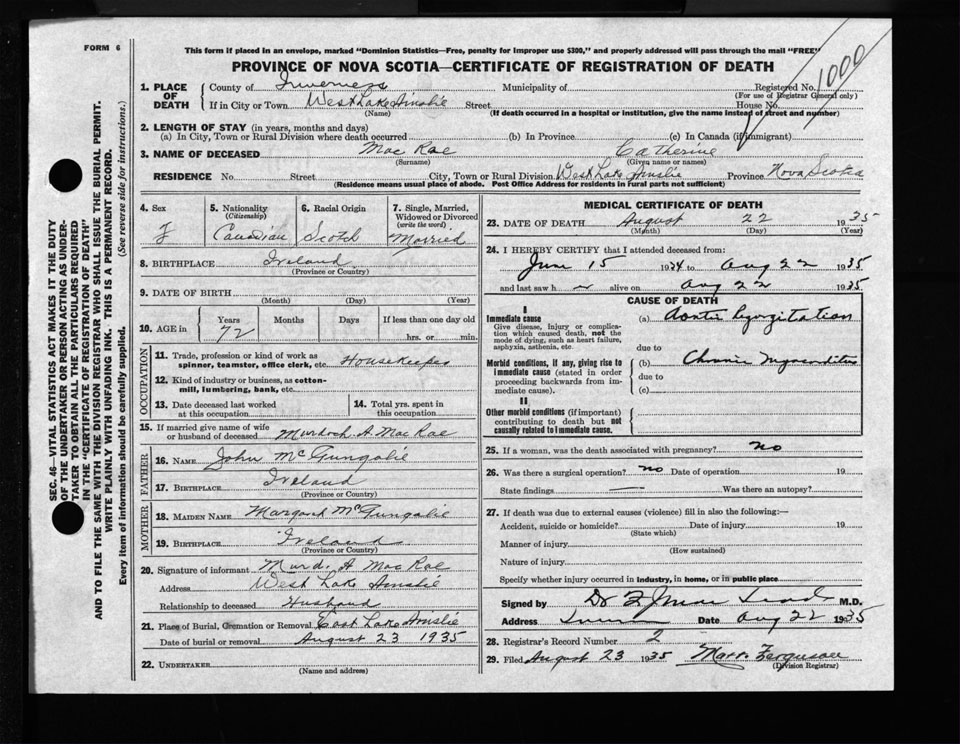 FORM 6
This form if placed in an envelope, marked "Dominion Statistics—Free, penalty for improper use $300," and properly addressed will pass through the mail "FREE"
PROVINCE OF NOVA SCOTIA—CERTIFICATE OF REGISTRATION OF DEATH
1000
SEC. 46—VITAL STATISTICS ACT MAKES IT THE DUTY
OF THE UNDERTAKER OR PERSON ACTING AS UNDER-
TAKER TO OBTAIN ALL THE PARTICULARS REQUIRED
IN THE "CERTIFICATE OF REGISTRATION OF DEATH"
AND TO FILE THE SAME WITH THE DIVISION REGISTRAR WHO SHALL ISSUE THE BURIAL PERMIT.
WRITE PLAINLY WITH UNFADING INK. THIS IS A PERMANENT RECORD.
Every item of information should be carefully supplied. (See reverse side for instructions.)
1. PLACE OF DEATH
County of Inverness Municipality of Registered No.
(For use of Registrar General only)
If in City or Town West Lake Ainslie Street House No.
(Name) (If death occurred in a hospital or institution, give the name instead of street and number)
2. LENGTH OF STAY (in years, months and days)
(a) In City, Town or Rural Division where death occurred (b) In Province (c) In Canada (if immigrant)
3. NAME OF DECEASED Mac Rae Catherine
(Surname) (Given name or names)
RESIDENCE No. Street City, Town or Rural Division West Lake Ainslie Province Nova Scotia
(Residence means usual place of abode. Post Office Address for residents in rural parts not sufficient)
4. Sex F
5. Nationality (Citizenship) Canadian
6. Racial Origin Scotch
7. Single, Married, Widowed or Divorced (write the word) Married
8. BIRTHPLACE Ireland
(Province or Country)
9. DATE OF BIRTH
(Month) (Day) (Year)
10. AGE in Years 72 Months Days If less than one day old
hrs. or min.
OCCUPATION
11. Trade, profession or kind of work as spinner, teamster, office clerk, etc. Housekeeper
12. Kind of industry or business, as cotton-mill, lumbering, bank, etc.
13. Date deceased last worked at this occupation
14. Total yrs. spent in this occupation
15. If married give name of wife or husband of deceased Murdoch A. Mac Rae
FATHER
16. NAME John
17. BIRTHPLACE Ireland
(Province or Country)
MOTHER
18. MAIDEN NAME Margaret
19. BIRTHPLACE Ireland
(Province or Country)
20. Signature of informant Murd. A Mac Rae
Address West Lake Ainslie
Relationship to deceased Husband
21. Place of Burial, Cremation or Removal East Lake Ainslie
Date of burial or removal August 23 1935
22. UNDERTAKER
(Name and address)
MEDICAL CERTIFICATE OF DEATH
23. DATE OF DEATH August 22 1935
(Month) (Day) (Year)
24. I HEREBY CERTIFY that I attended deceased from:
June 15 1934 to Aug 22 1935
and last saw h er alive on Aug 22 1935
CAUSE OF DEATH
I
Immediate cause
Give disease, injury or complication which caused death, not the mode of dying, such as heart failure, asphyxia, asthenia, etc.
(a) Aortic regurgitation
due to
Morbid conditions, if any, giving rise to immediate cause (stated in order proceeding backwards from immediate cause).
(b) Chronic Myocarditis
due to
(c)
II
Other morbid conditions (if important) contributing to death but not causally related to immediate cause.
25. If a woman, was the death associated with pregnancy? no
26. Was there a surgical operation? no Date of operation 19
State findings — Was there an autopsy?
27. If death was due to external causes (violence) fill in also the following:—
Accident, suicide or homicide? Date of injury 19
(State which)
Manner of injury
(How sustained)
Nature of injury
Specify whether injury occurred in industry, in home, or in public place
Signed by Dr M.D.
Address Date Aug 22 1935
28. Registrar's Record Number 2
29. Filed August 23 1935 Ferguson
(Division Registrar)